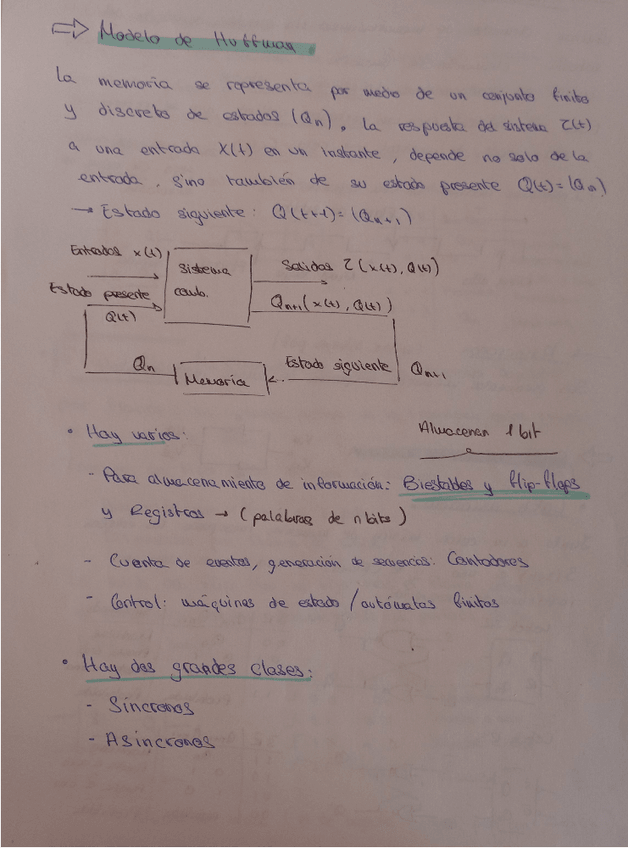 ⇒ Modelo de Huffman.
La memoria se representa por medio de un conjunto finito
y discreto de estados (Qn). La respuesta del sistema Z(t)
a una entrada X(t) en un instante, depende no solo de la
entrada, sino también de su estado presente Q(t)=(Qn)
→ Estado siguiente: Q(t+1)=(Qn+1)
Entradas x(t)
Sistema
comb.
Salidas Z(x(t), Q(t))
Estado presente
Q(t)
Qn+1(x(t), Q(t))
Qn
Memoria
Estado siguiente
Qn+1
• Hay varios:
Almacenan 1 bit
- Para almacenamiento de información: Biestables y flip-flops
y Registros → (palabras de n bits)
- Cuenta de eventos, generación de secuencias: Contadores
- Control: máquinas de estado/autómatas finitos
• Hay dos grandes clases:
- Síncronos
- Asíncronos